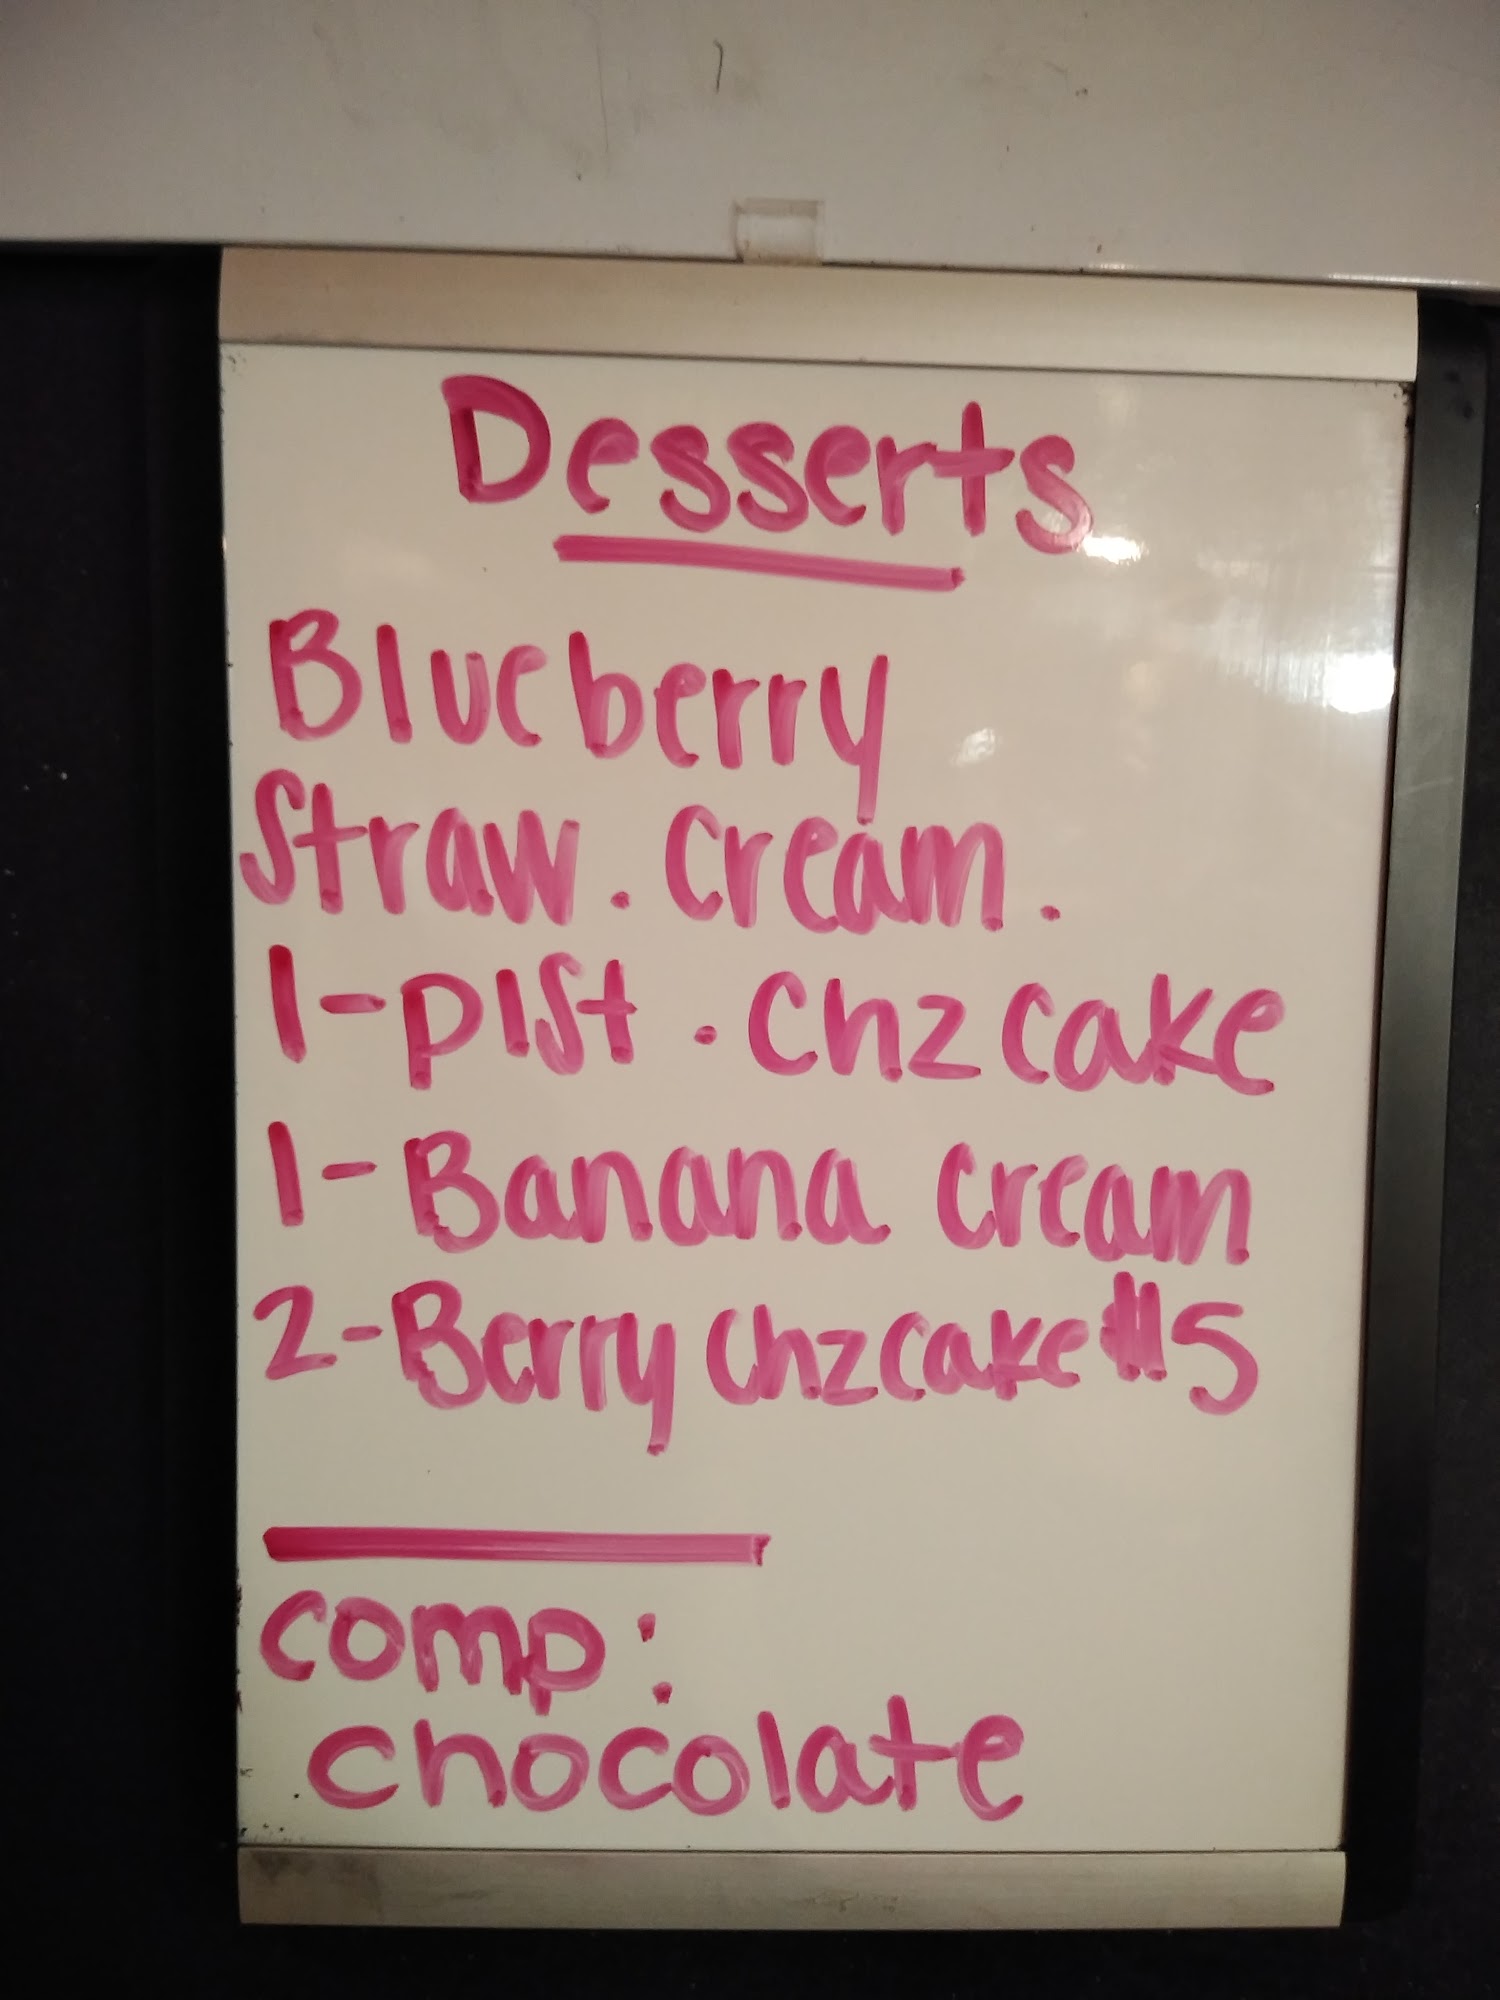 Desserts
Blueberry
Straw. Cream.
1-pist. Chzcake
1-Banana Cream
2-Berry Chzcake #5
comp:
chocolate